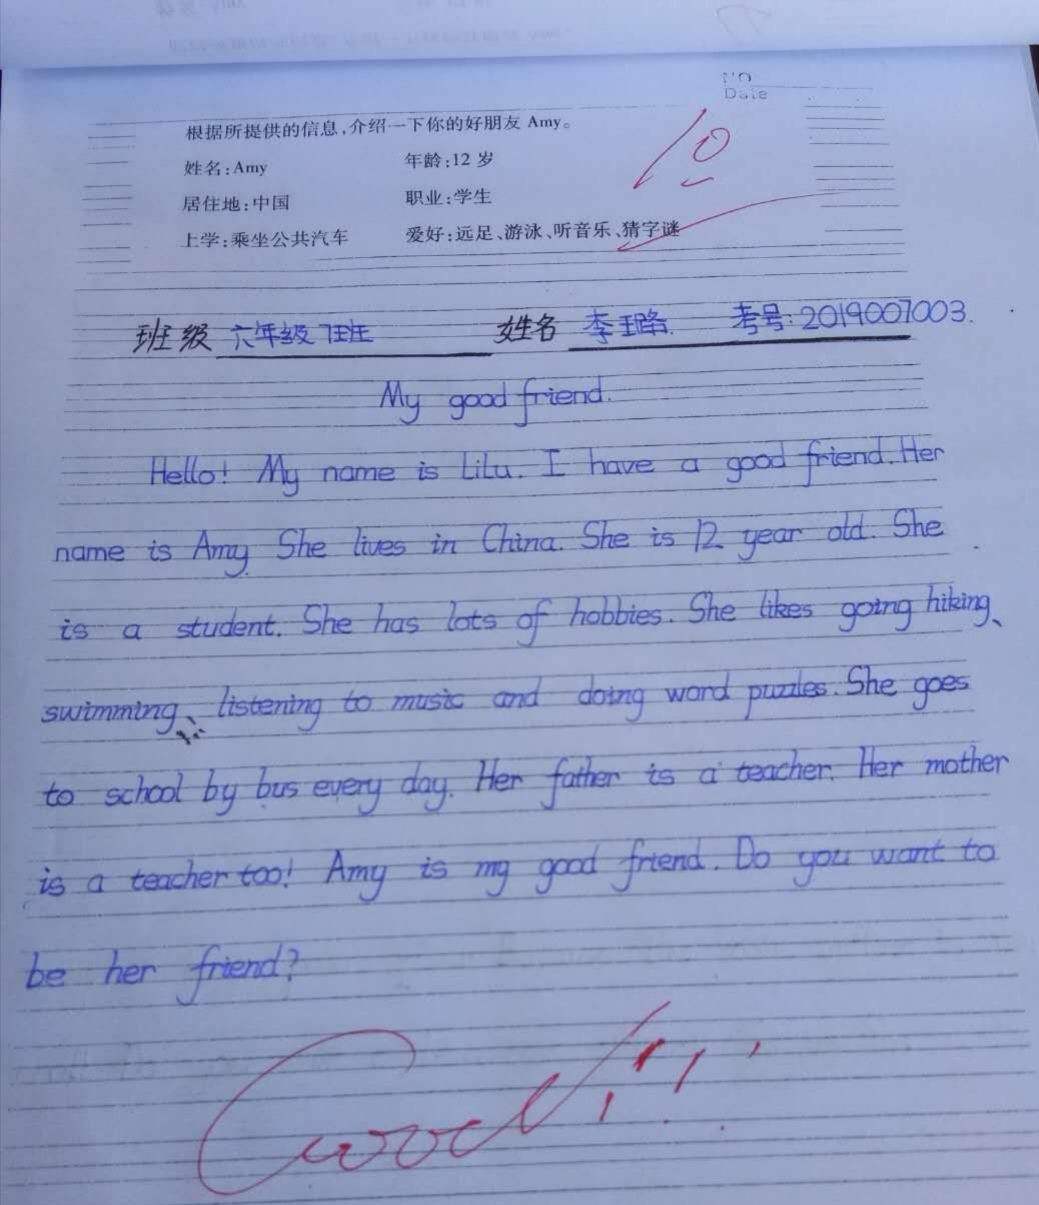 NO
Date
根据所提供的信息,介绍一下你的好朋友 Amy。
姓名:Amy 年龄:12 岁
居住地:中国 职业:学生
上学:乘坐公共汽车 爱好:远足、游泳、听音乐、猜字谜
10
班级 六年级 7班 姓名 李璐 考号:2019007003.
My good friend.
Hello! My name is LiLu. I have a good friend. Her
name is Amy. She lives in China. She is 12 year old. She
is a student. She has lots of hobbies. She likes going hiking、
swimming、listening to music and doing word puzzles. She goes
to school by bus every day. Her father is a teacher. Her mother
is a teacher too! Amy is my good friend. Do you want to
be her friend?
Good!!!